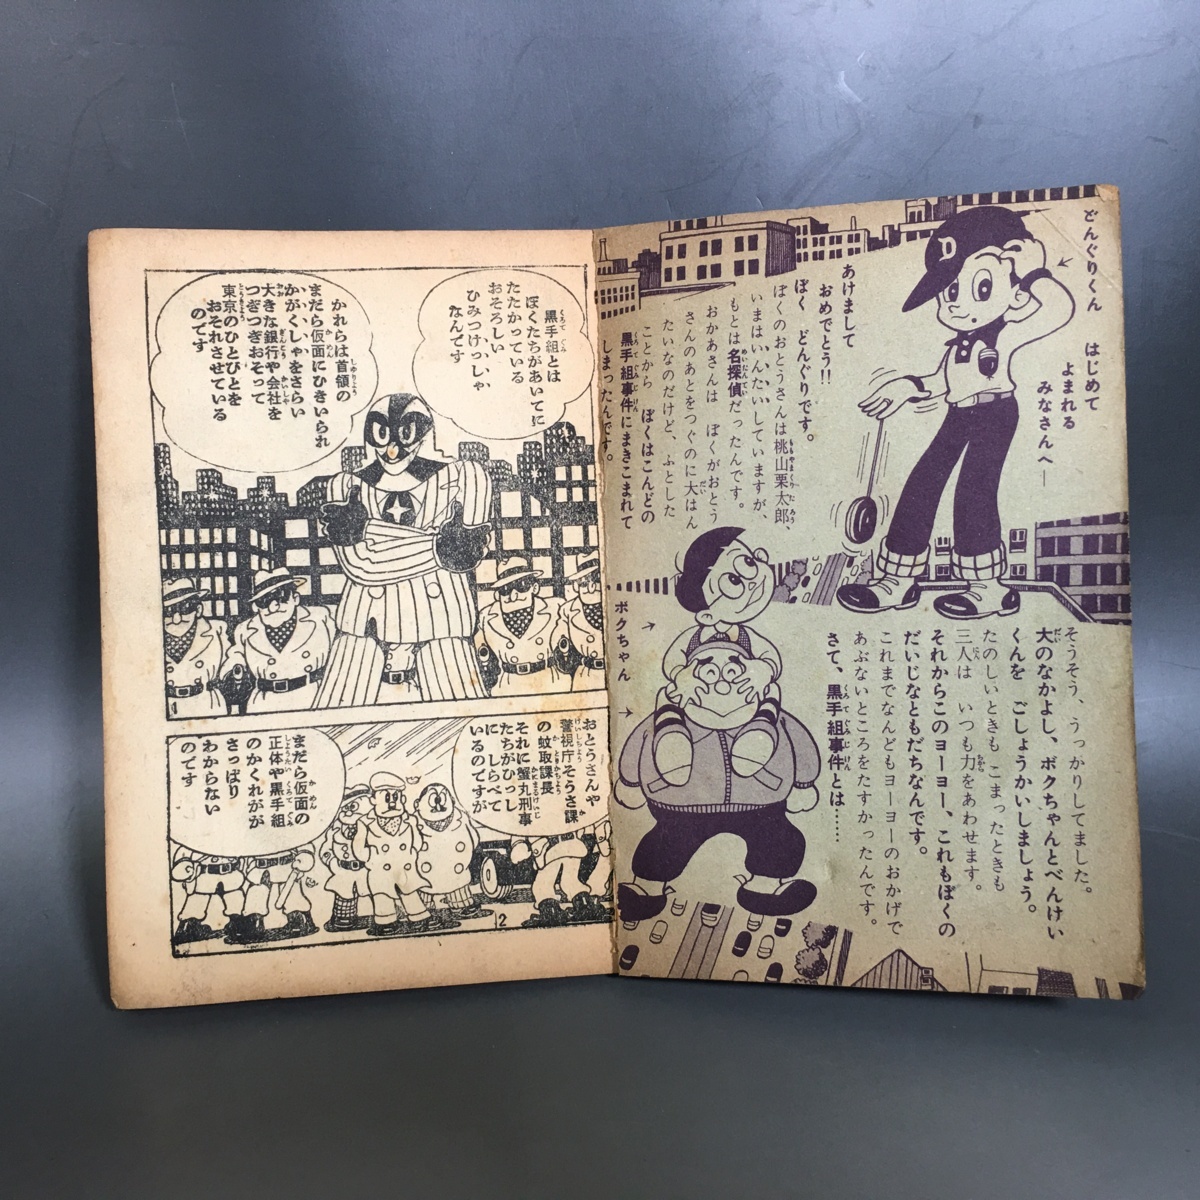 どんぐりくん
はじめて
よまれる
みなさんへ―
D
あけまして
おめでとう!!
ぼく どんぐりです。
ぼくのおとうさんは桃山栗太郎、
いまはいんたいしていますが、
もとは名探偵だったんです。
おかあさんは ぼくがおとう
さんのあとをつぐのに大はん
たいなのだけど、ふとした
ことから ぼくはこんどの
黒手組事件にまきこまれて
しまったんです。
ボクちゃん
そうそう、うっかりしてました。
大のなかよし、ボクちゃんとべんけい
くんを ごしょうかいしましょう。
たのしいときも こまったときも
三人は いつも力をあわせます。
それからこのヨーヨー、これもぼくの
だいじなともだちなんです。
これまでなんどもヨーヨーのおかげで
あぶないところをたすかったんです。
さて、黒手組事件とは……
黒手組とは
ぼくたちがあいてに
たたかっている
おそろしい
ひみつけっしゃ
なんです
かれらは首領の
まだら仮面にひきいられ
かがくしゃをさらい
大きな銀行や会社を
つぎつぎおそって
東京のひとびとを
おそれさせている
のです
1
おとうさんや
警視庁そうさ課
の蚊取課長
それに蟹丸刑事
たちがひっし
にしらべて
いるのですが
まだら仮面の
正体や黒手組
のかくれがが
さっぱり
わからない
のです
2